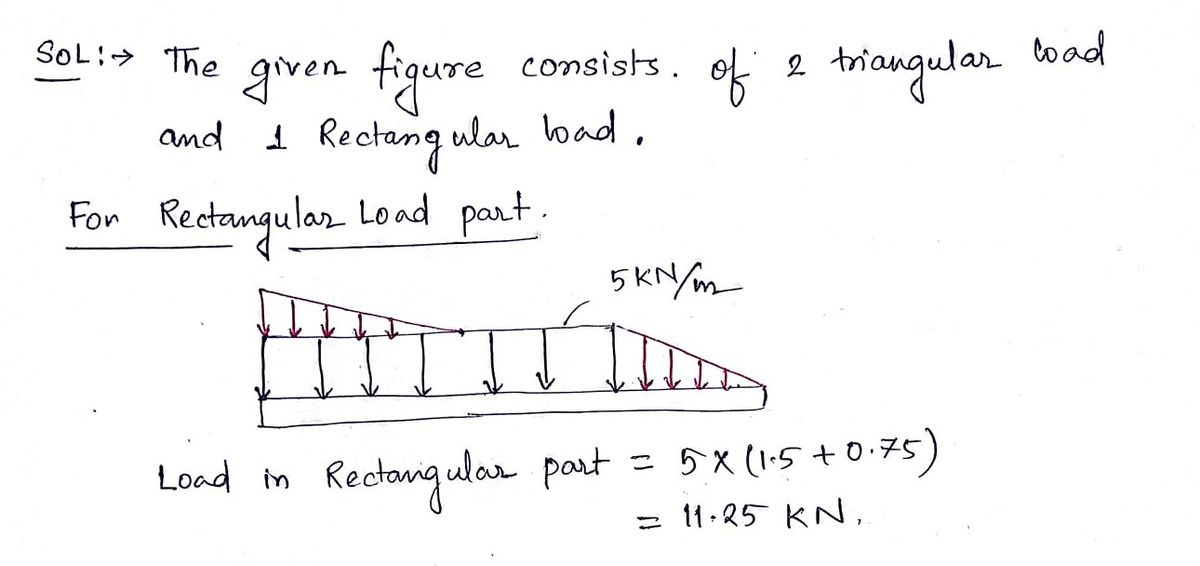 SOL:→ The given figure consists. of 2 triangular load
and 1 Rectangular load.
For Rectangular Load part.
5KN/m
Load in Rectangular part = 5 x (1.5 + 0.75)
= 11.25 KN.